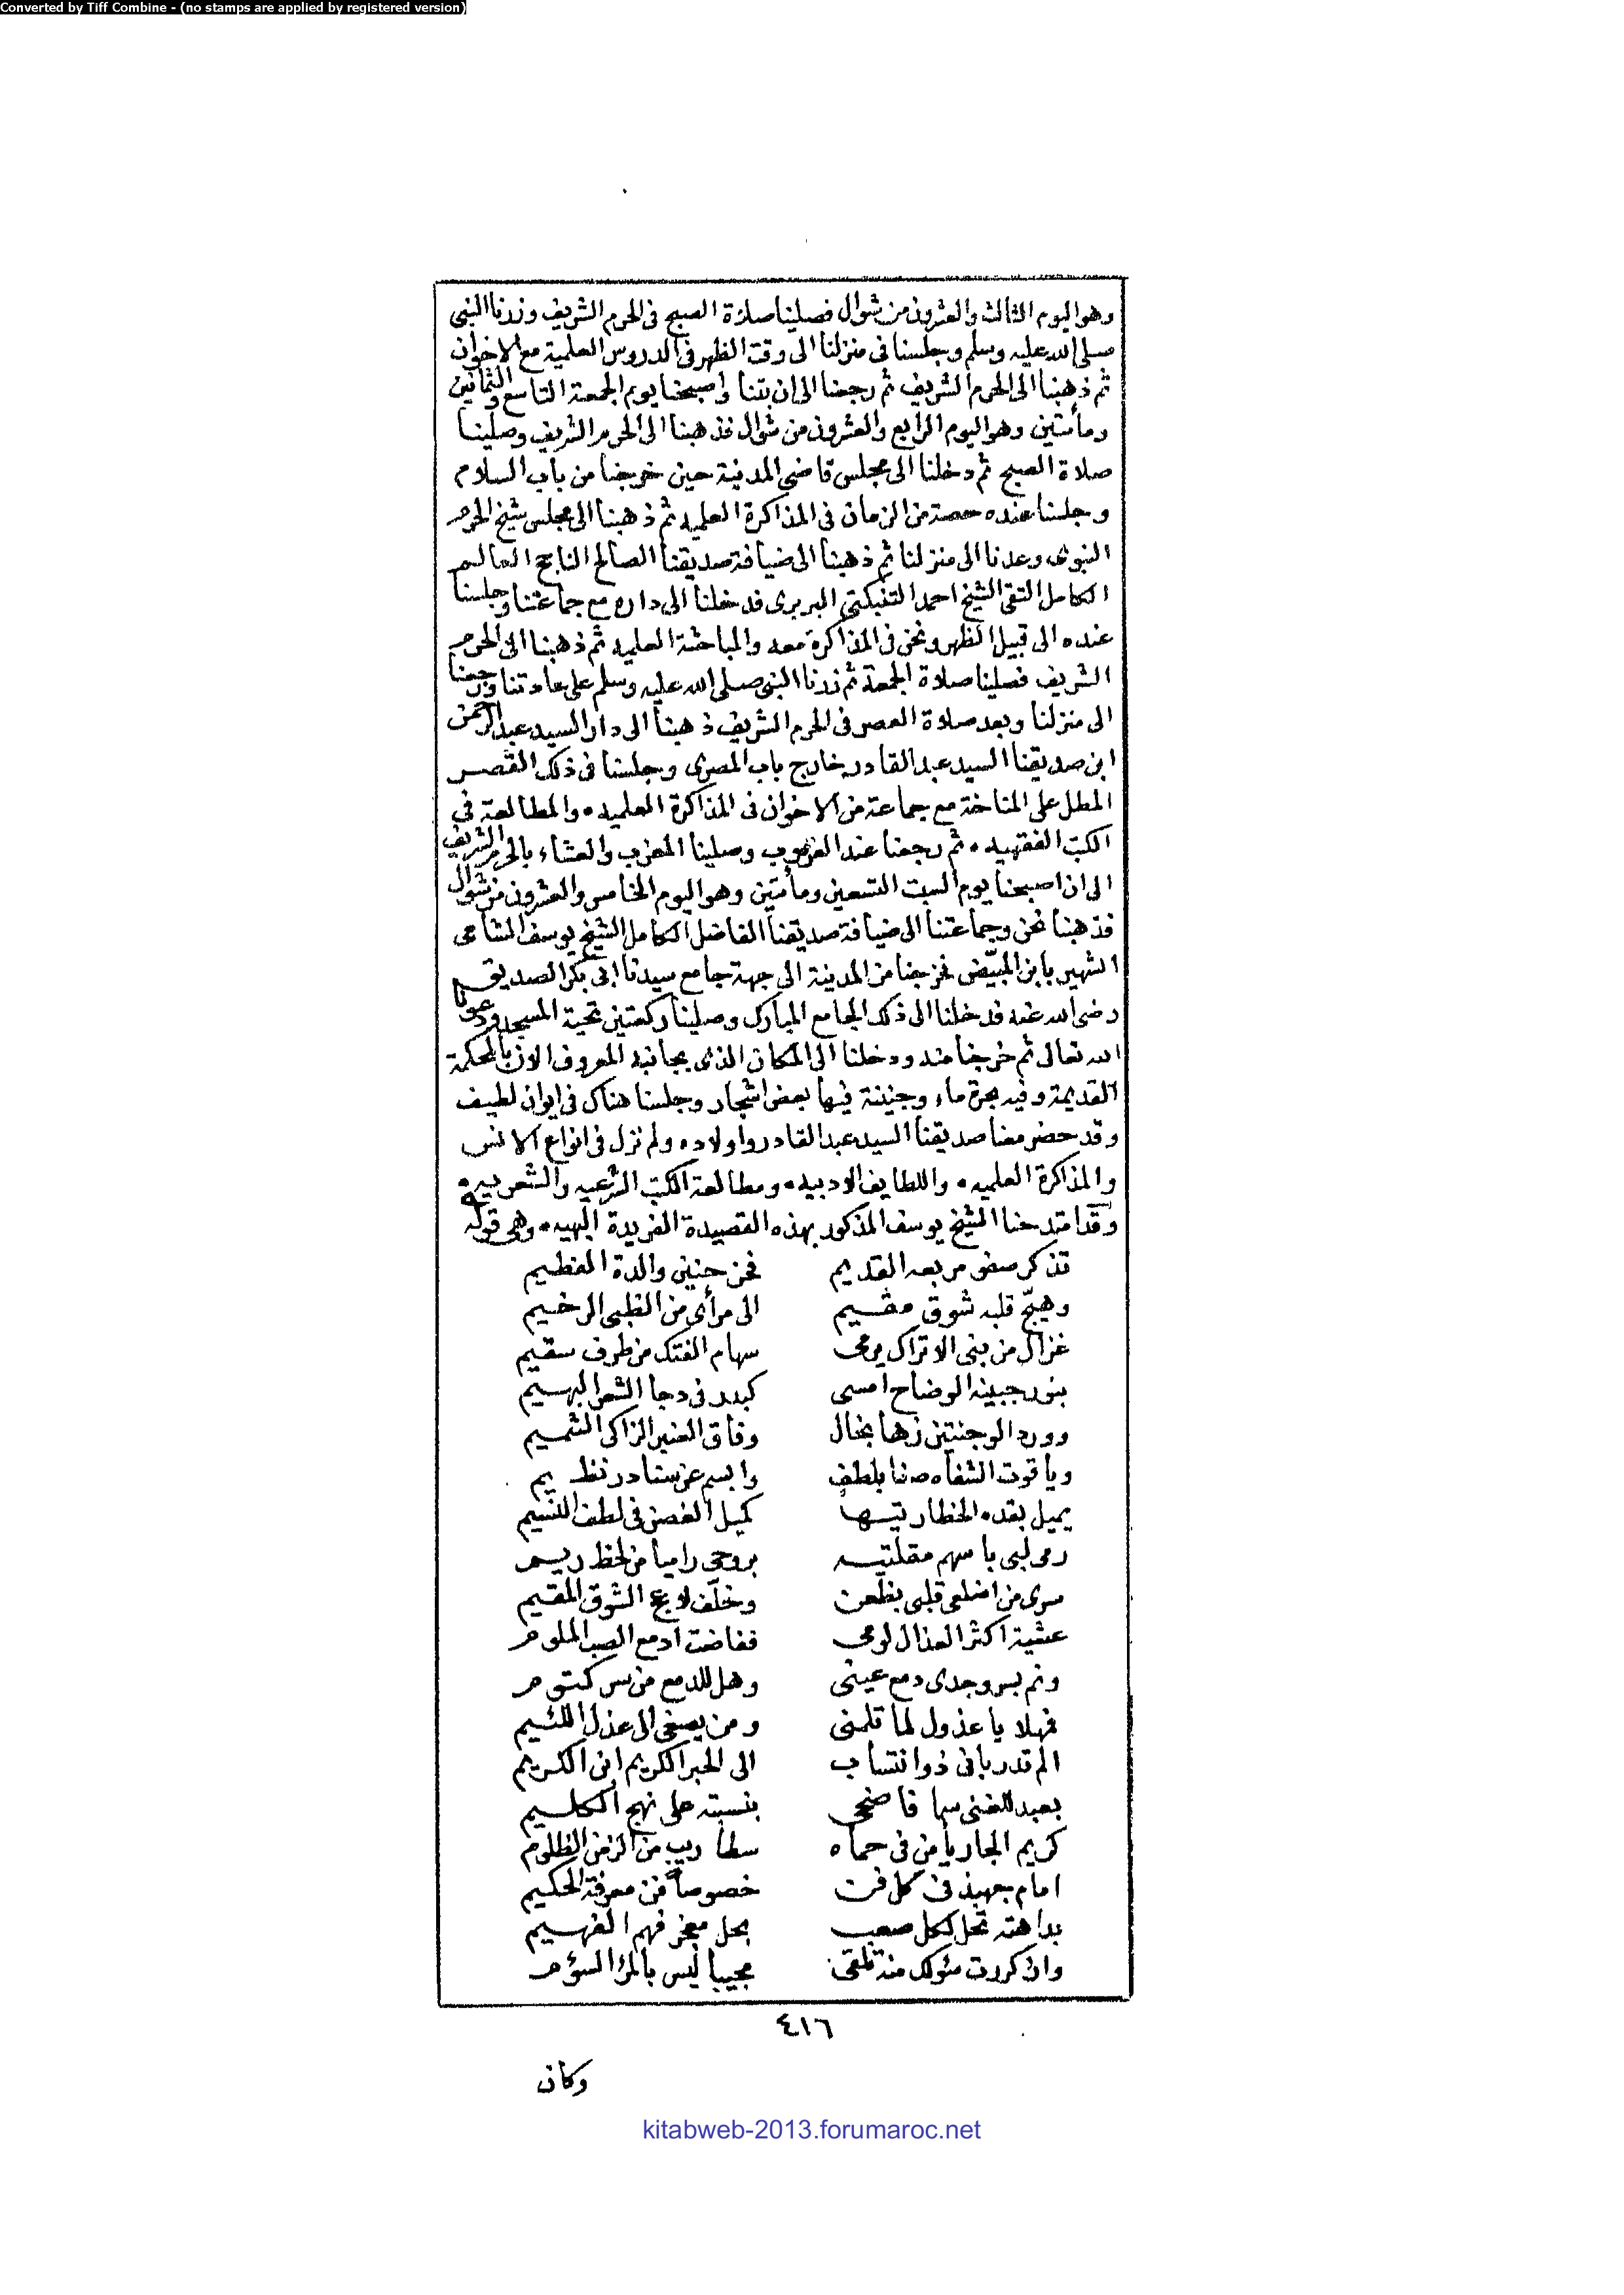 Converted by Tiff Combine - (no stamps are applied by registered version)
وهو اليوم الثالث والعشرون من شوال فصلينا صلاة الصبح في الحرم الشريف وزرنا النبي
صلى الله عليه وسلم وجلسنا في منزلنا الى وقت الظهر في الدروس العلمية مع الاخوان
ثم ذهبنا الى الحرم الشريف ثم رجعنا الى ان بتنا واصبحنا يوم الجمعة التاسع والثمانين
ومأتين وهو اليوم الرابع والعشرون من شوال فذهبنا الى الحرم الشريف وصلينا
صلاة الصبح ثم دخلنا الى مجلس قاضي المدينة حين خرجنا من باب السلام
وجلسنا عنده حصة من الزمان في المذاكرة العلميه ثم ذهبنا الى مجلس شيخ الحرم
النبوي وعدنا الى منزلنا ثم ذهبنا الى ضيافة صديقنا الصالح الناجح العالم
الكامل التقي الشيخ احمد التنبكتي البربري فدخلنا الى داره مع جماعتنا وجلسنا
عنده الى قبيل الظهر ونحن في المذاكرة معه والمباحثة العلميه ثم ذهبنا الى الحرم
الشريف فصلينا صلاة الجمعة ثم زرنا النبي صلى الله عليه وسلم على عادتنا ورجعنا
الى منزلنا وبعد صلاة العصر في الحرم الشريف ذهبنا الى دار السيد عبد الرحمن
ابن صديقنا السيد عبد القادر خارج باب المصري وجلسنا في ذلك القصر
المطل على المناخة مع جماعة من الاخوان في المذاكرة العلميه • والمطالعة في
الكتب الفقهيه • ثم رجعنا عند الغروب وصلينا المغرب والعشاء بالحرم الشريف
الى ان اصبحنا يوم السبت التسعين ومأتين وهو اليوم الخامس والعشرون من شوال
فذهبنا نحن وجماعتنا الى ضيافة صديقنا الفاضل الكامل الشيخ يوسف
الشهير بابن المبيّض فخرجنا من المدينة الى جهة جامع سيدنا ابي بكر الصديق
رضي الله عنه فدخلنا الى ذلك الجامع المبارك وصلينا ركعتين تحية المسجد ودعونا
الله تعالى ثم خرجنا منه ودخلنا الى المكان الذي بجانبه المعروف الان بالمحكمة
القديمة وفيه بحرة ماء وجنينة فيها بعض اشجار وجلسنا هناك في ايوان لطيف
وقد حضر معنا صديقنا السيد عبد القادر واولاده ولم نزل في انواع الانس
والمذاكرة العلميه • واللطايف الادبيه • ومطالعة الكتب الشرعيه والشعريه •
وقد امتدحنا الشيخ يوسف المذكور بهذه القصيدة الفريدة البهيه • وهي قوله
تذكر صفو مربعه القديم فحن حنين والدة الفطيم
وهيّج قلبه شوق مقيم الى مرأى من الظبي الرخيم
غزال من بني الاتراك يرمي سهام الفتك من طرف سقيم
بنور جبينه الوضاح امسى كبدر في دجا الشعر البهيم
وورد الوجنتين زها بخال وفاق العنبر الزاكي الشميم
وياقوت الشفاه بلطف وابسم عن سنا در نظيم
يميل بقده الخطار تيها كميل الغصن في لطف النسيم
رمى لبي باسهم مقلتيه بروحي راميا من لحظ ريم
سرى من اضلعي قلبي بظعن وخلّف لاعج الشوق المقيم
عشية اكثر العذال لومي ففاضت ادمع الصب الملوم
ونم بسر وجدي دمع عيني وهل للدمع من سر كتوم
فهلا يا عذول لما تلمني ومن يصغي الى عذل اللئيم
الم تدر باني ذو انتساب الى الحبر الكريم ابن الكريم
بعبد للغني سما فاضحى بنسبته على نهج الكليم
كريم الجار يأمن في حماه سطا ريب من الزمن الظلوم
امام جهبذ في كل فن خصوصاً فن معرفة الحكيم
بداهته تحل لكل صعب بحل معجز فهم الفهيم
وان كررت سئولك منه تلقى مجيبا ليس بالمرء السؤم
٤١٦
وكان
kitabweb-2013.forumaroc.net